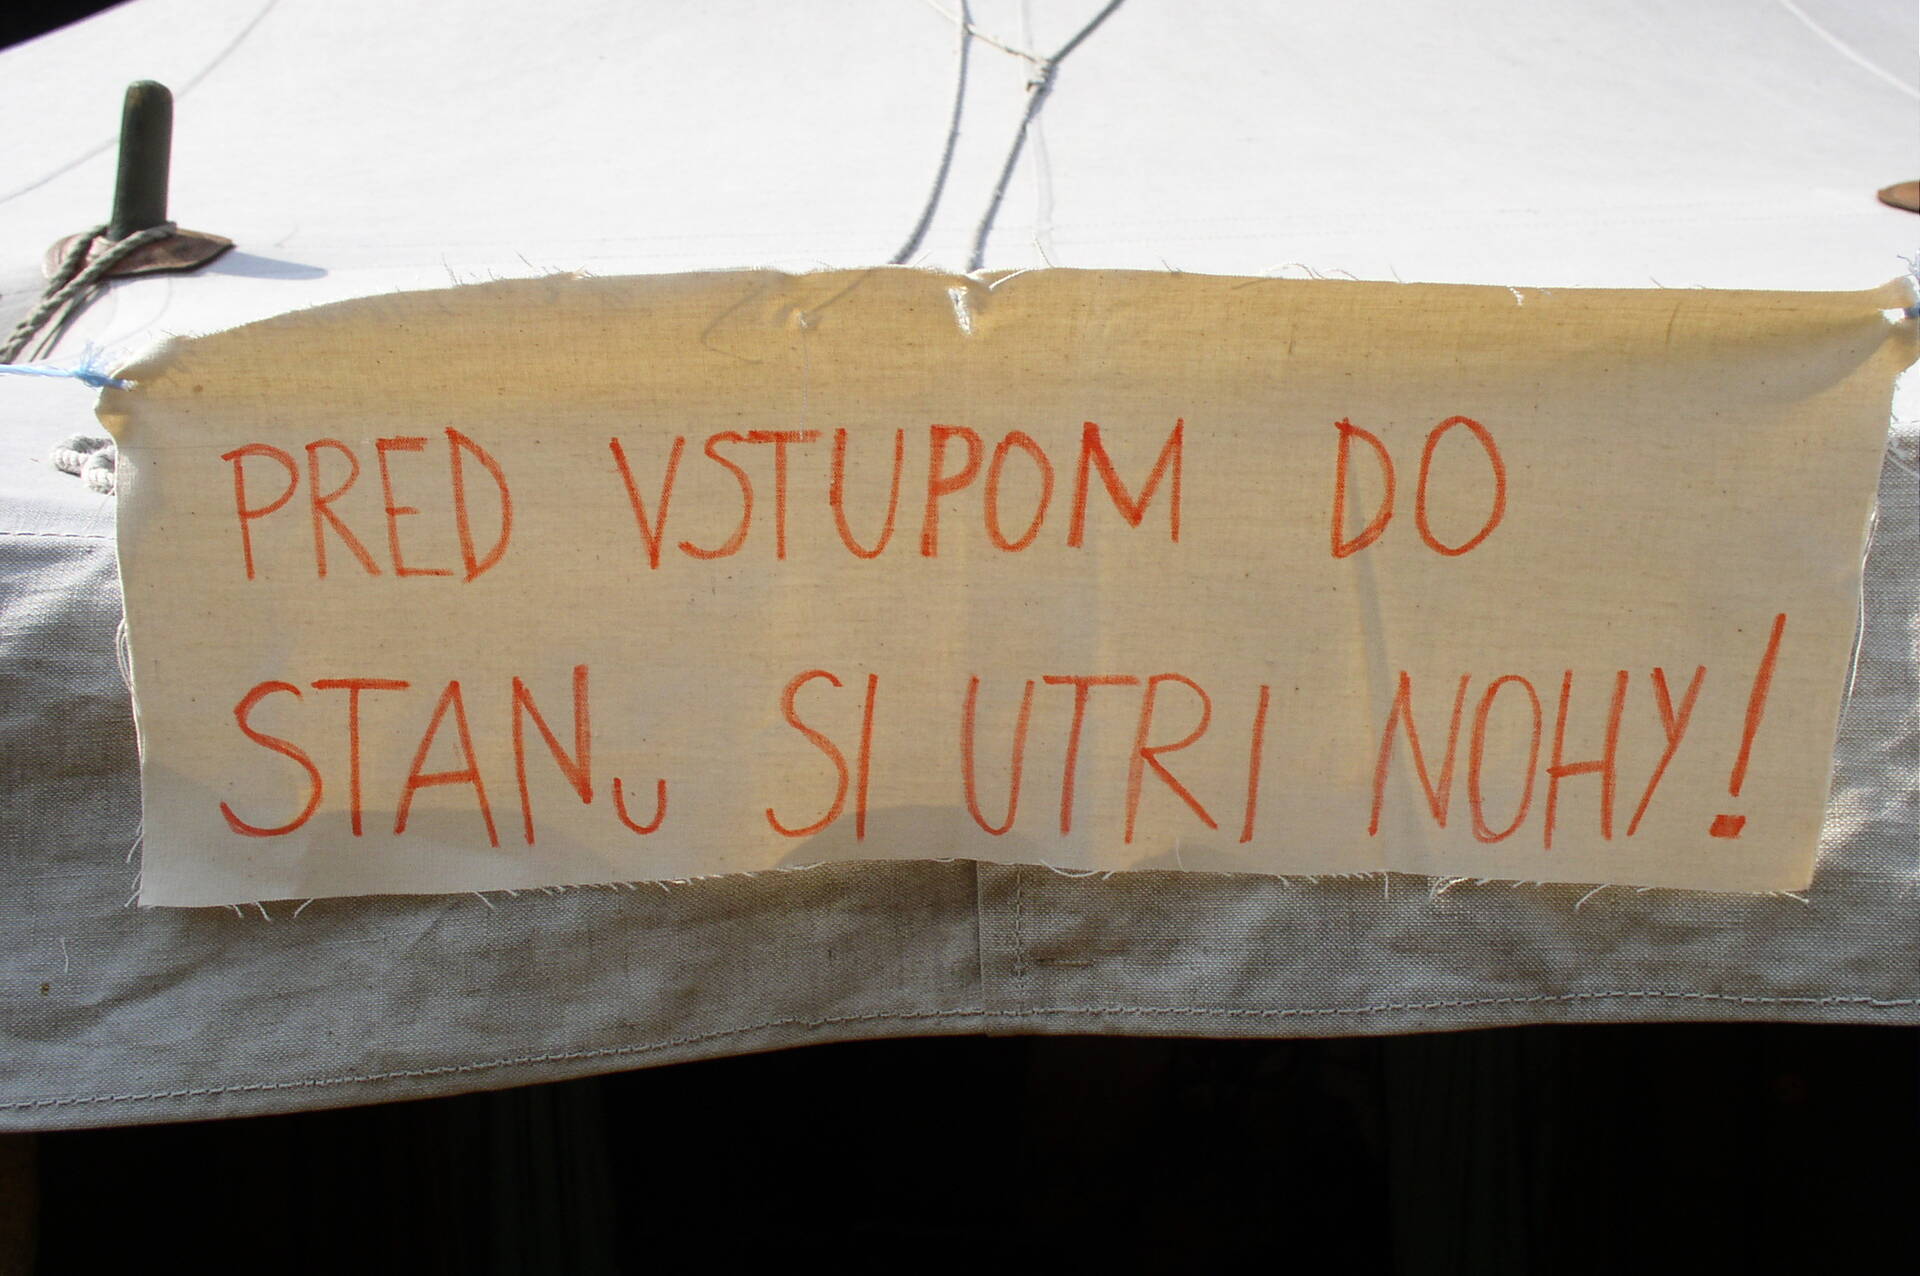 PRED VSTUPOM DO
STANu SI UTRI NOHY!